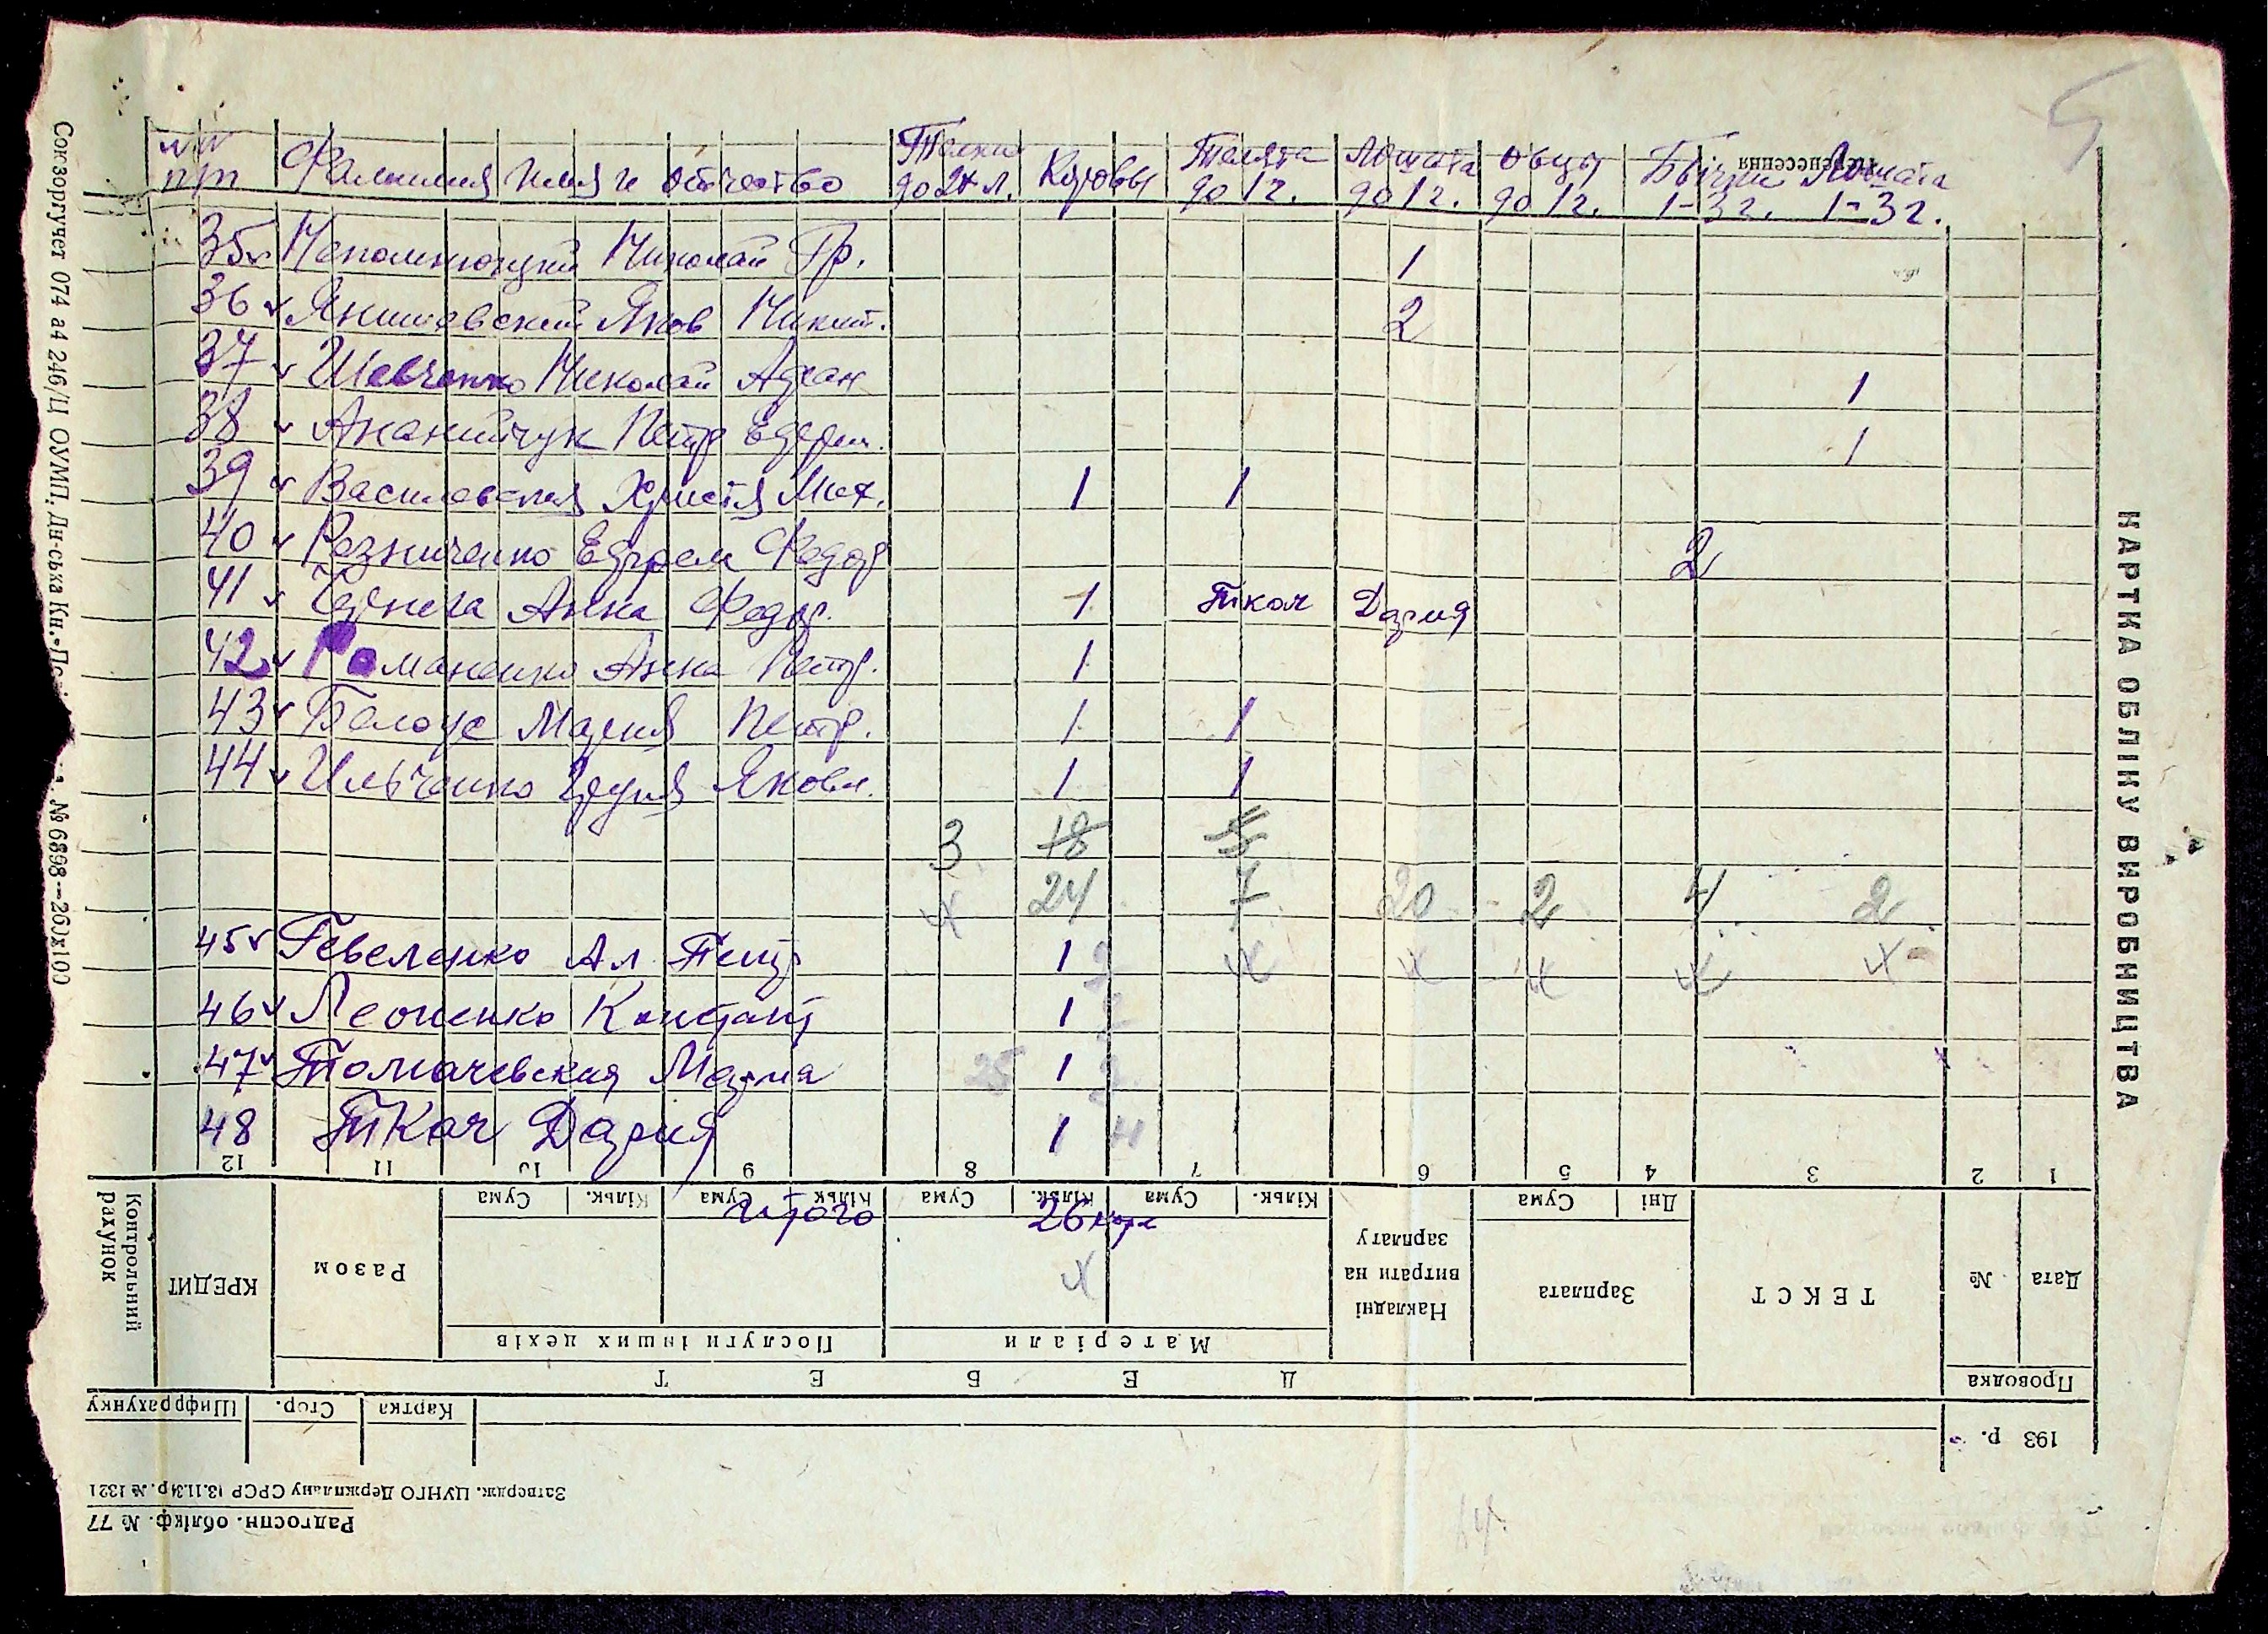 №№ п/п Фамилия Имя и отчество Телки до 2х л. Коровы Телята до 1г. Лошата до 1г. Овцы до 1г. Бычки 1-3г. Лошата 1-3г.
Перенесення
35 Непомнющий Николай Гр. 1
36 Янишевский Яков Никит. 2
37 Шевченко Николай Адам 1
38 Ананийчук Петр Ефрем. 1
39 Василевская Христя Мих. 1 1
40 Резниченко Ефрем Федор 2
41 Анна Федор. 1 Ткач Дария
42 Романенко Анна Петр. 1
43 Белоус Мария Петр. 1 1
44 Ильченко Яковл. 1 1
3 18 5
24 7 20 2 4 2
45 Гевеленко Ал. Петр 1
46 Леоненко Констант 1
47 Толмачевская Мария 25 1
48 Ткач Дария 1
12 11 10 9 8 7 6 5 4 3 2 1
Сума Кільк. Сума Кільк. Сума Кільк. Сума Кільк. Сума Дні
Итого 26 кор
Контрольний рахунок
КРЕДИТ
Разом
Накладні витрати на зарплату
Зарплата
ТЕКСТ
№
Дата
Послуги інших цехів
Матеріали
ДЕБЕТ
Проводка
Шифррахунку Стор. Картка
193 р.
Затвердж. ЦУНГО Держплану СРСР 13.11.34р. № 1321
Радгоспн. облікф. № 77
КАРТКА ОБЛІКУ ВИРОБНИЦТВА
Союзоргучет 074 а4 246/Ц ОУМП. Дн-ська Кн. № 6898—260х100